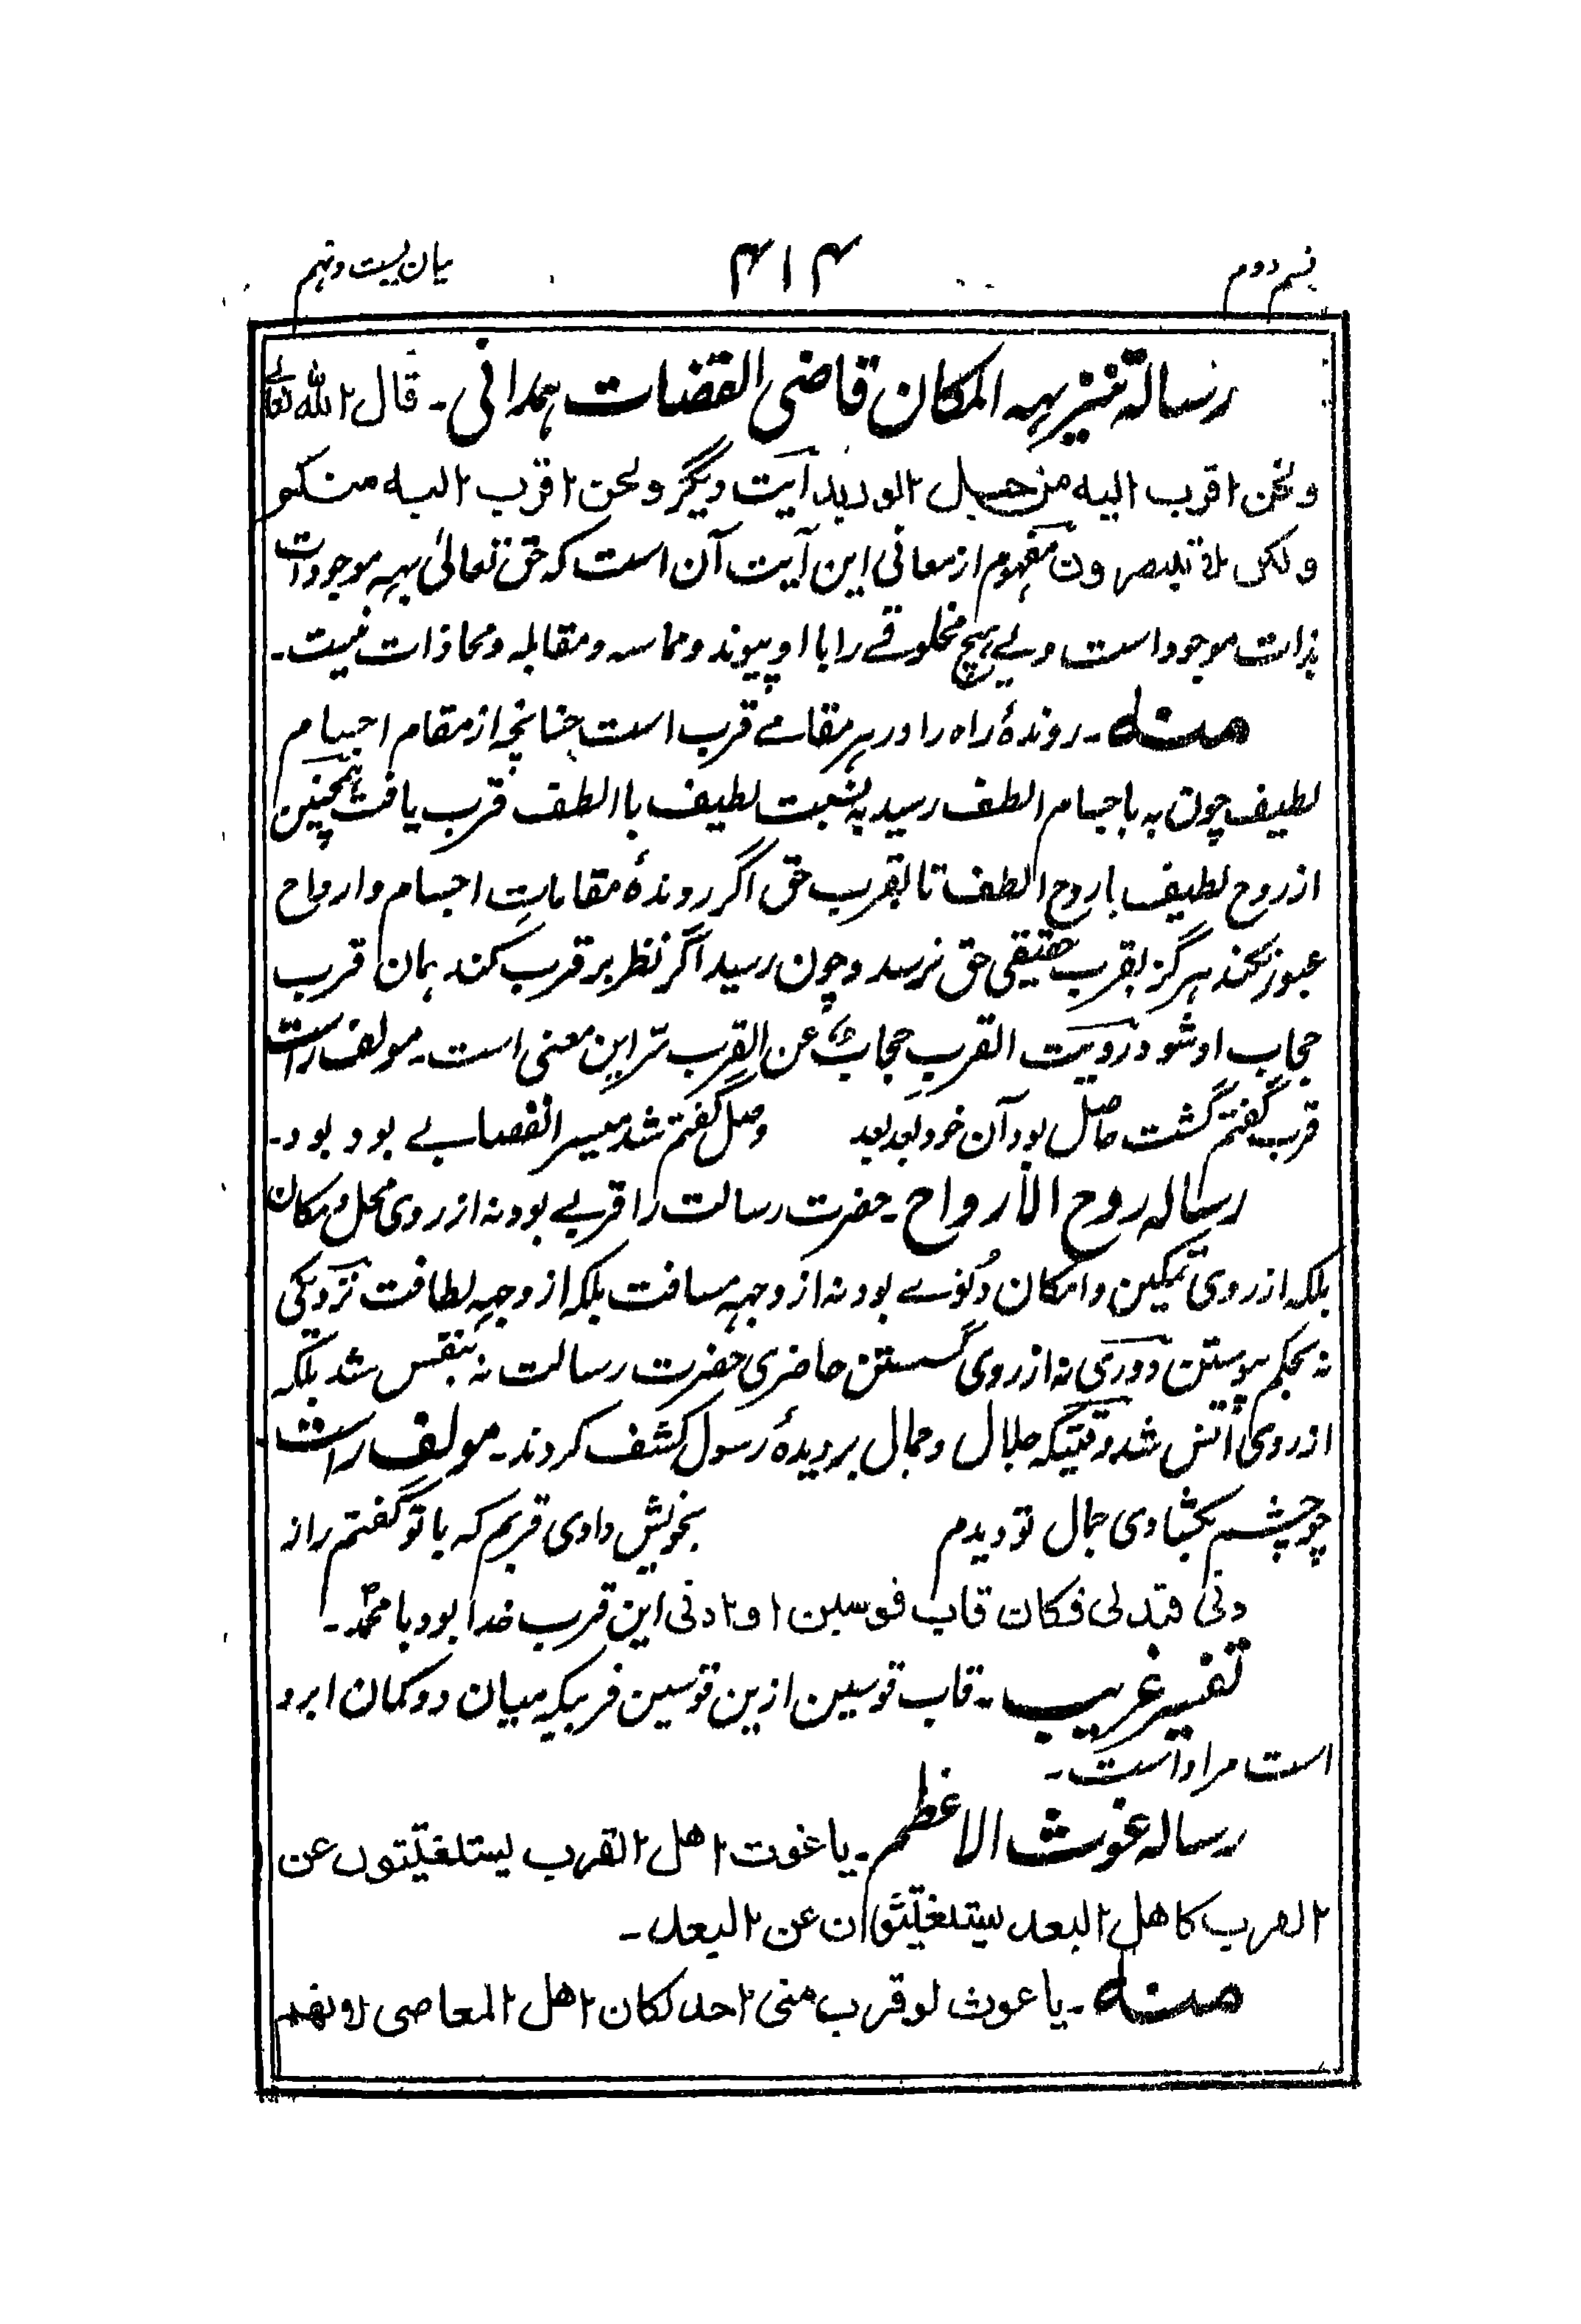 قسم دوم
۴۱۴
بیان بیست و نهم
رسالۂ تنزیهه المکان قاضی القضات همدانی۔ قال الله تعالے
ونحن اقرب الیه من حبل الورید آیت دیگر ونحن اقرب الیه منکم
ولکن لا تبصرون مفهوم از معانی این آیت آن است که حق تعالیٰ بهمه موجودات
بذات موجود است ولے هیچ مخلوقے را با او پیوند و مماسه و مقابله و محاذات نیست۔
منه۔ روندۂ راه را در هر مقامے قرب است چنانچه از مقام اجسام
لطیف چون به باجسام الطف رسید به نسبت لطیف با الطف قرب یافت همچنین
از روح لطیف با روح الطف تا بقرب حق اگر روندۂ مقاماتِ اجسام و ارواح
عبور نکند هرگز بقرب حقیقی حق نرسد و چون رسید اگر نظر بر قرب کند همان قرب
حجاب او شود رویت القربِ حجابٌ عن القرِب سرّ این معنی است۔ مولف راست
قرب گفتم گشت حاصل بود آن خود بعد بعد وصل گفتم شد میسر انفصالے بود بود۔
رساله روح الأرواح۔ حضرت رسالت را قربے بود نه از روی محل و مکان
بلکه از روی تمکین و امکان دُنُوے بود نه از وجهه مسافت بلکه از وجهِ لطافت نزدیکی
نه بحکم پیوستن دوری نه از روی گسستن حاضری حضرت رسالت نه بنفس شد بلکه
از روی اُنس شد وقتیکه جلال و جمال بر دیدۂ رسول کشف کردند۔ مولف راست
چو چشم بکشادی جمال تو دیدم بخویش دادی قربم که با تو گفتم راز
دنی فتدلی فکان قاب قوسین او ادنی این قرب خدا بود با محمدؐ۔
تفسیر غریب۔ قاب قوسین ازین قوسین قربیکه میان دو کمان ابرو
است مراد است۔
رساله غوث الاعظم۔ یا غوث اهل القرب یستغیثون عن
القرب کاهل البعد یستغیثون عن البعد۔
منه۔ یا غوث لو قرب منی احد لکان اهل المعاصی لانهم